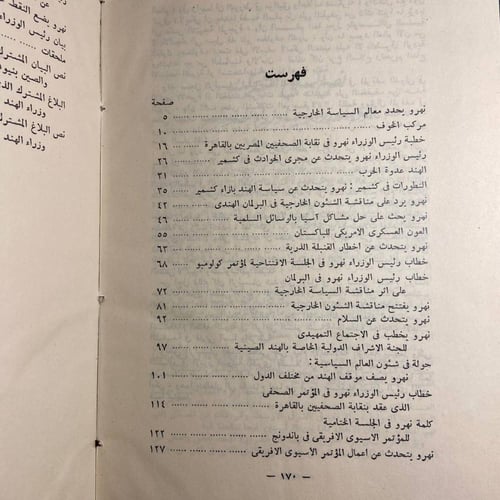 فهرست
صفحة
نهرو يحدد معالم السياسة الخارجية ... ... ... ... ٥
مركب الخوف ... ... ... ... ... ... ١٠
خطبة رئيس الوزراء نهرو فى نقابة الصحفيين المصريين بالقاهرة ... ١٦
رئيس الوزراء نهرو يتحدث عن مجرى الحوادث فى كشمير ... ٢٦
الهند عدوة الحرب ... ... ... ... ... ٣١
التطورات فى كشمير : نهرو يتحدث عن سياسة الهند بازاء كشمير ٣٥
نهرو يرد على مناقشة الشئون الخارجية فى البرلمان الهندى ... ٤٢
نهرو يحث على حل مشاكل آسيا بالوسائل السلمية ... ... ٤٦
العون العسكرى الامريكى للباكستان ... ... ... ٥٥
نهرو يتحدث عن اخطار القنبلة الذرية ... ... ... ٦٣
خطاب رئيس الوزراء نهرو فى الجلسة الافتتاحية لمؤتمر كولومبو ... ٦٨
خطاب رئيس الوزراء نهرو فى البرلمان
على اثر مناقشة السياسة الخارجية ... ... ... ٧٢
نهرو يفتتح مناقشة الشئون الخارجية ... ... ... ٨١
نهرو يتحدث عن السلام ... ... ... ... ٩٢
نهرو يخطب فى الاجتماع التمهيدى
للجنة الاشراف الدولية الخاصة بالهند الصينية ... ... ٩٧
جولة فى شئون العالم السياسية :
نهرو يصف موقف الهند من مختلف الدول ... ... ١٠١
خطاب رئيس الوزراء نهرو فى المؤتمر الصحفى
الذى عقد بنقابة الصحفيين بالقاهرة ... ... ... ١١٤
كلمة نهرو فى الجلسة الختامية
للمؤتمر الاسيوى الافريقى فى باندونج ... ... ... ١٢٢
نهرو يتحدث عن اعمال المؤتمر الاسيوى الافريقى ... ... ١٢٧
— ١٧٠ —
نهرو يضع النقط
بيان رئيس الوزراء
ملحقات ... ...
نص البيان المشترك
والصين
البلاغ المشترك
وزراء الهند
نص البلاغ المشترك
وزراء الهند